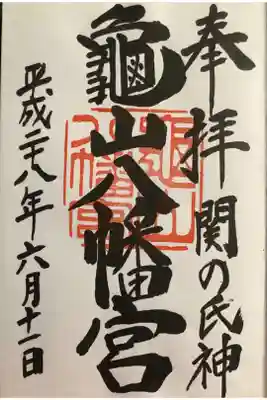 奉拝関の氏神
龜山八幡宮
平成二十八年六月十一日